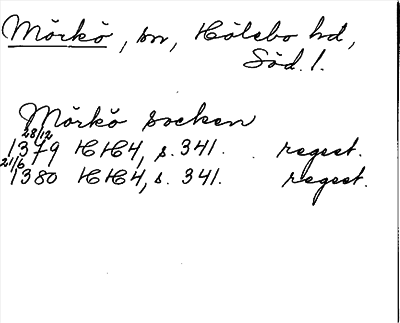 Mörkö, sn, Hölebo hd,
Söd. l.
Mörkö socken
28/12
1379 HH4, s. 341. regest.
21/6
1380 HH4, s. 341. regest.